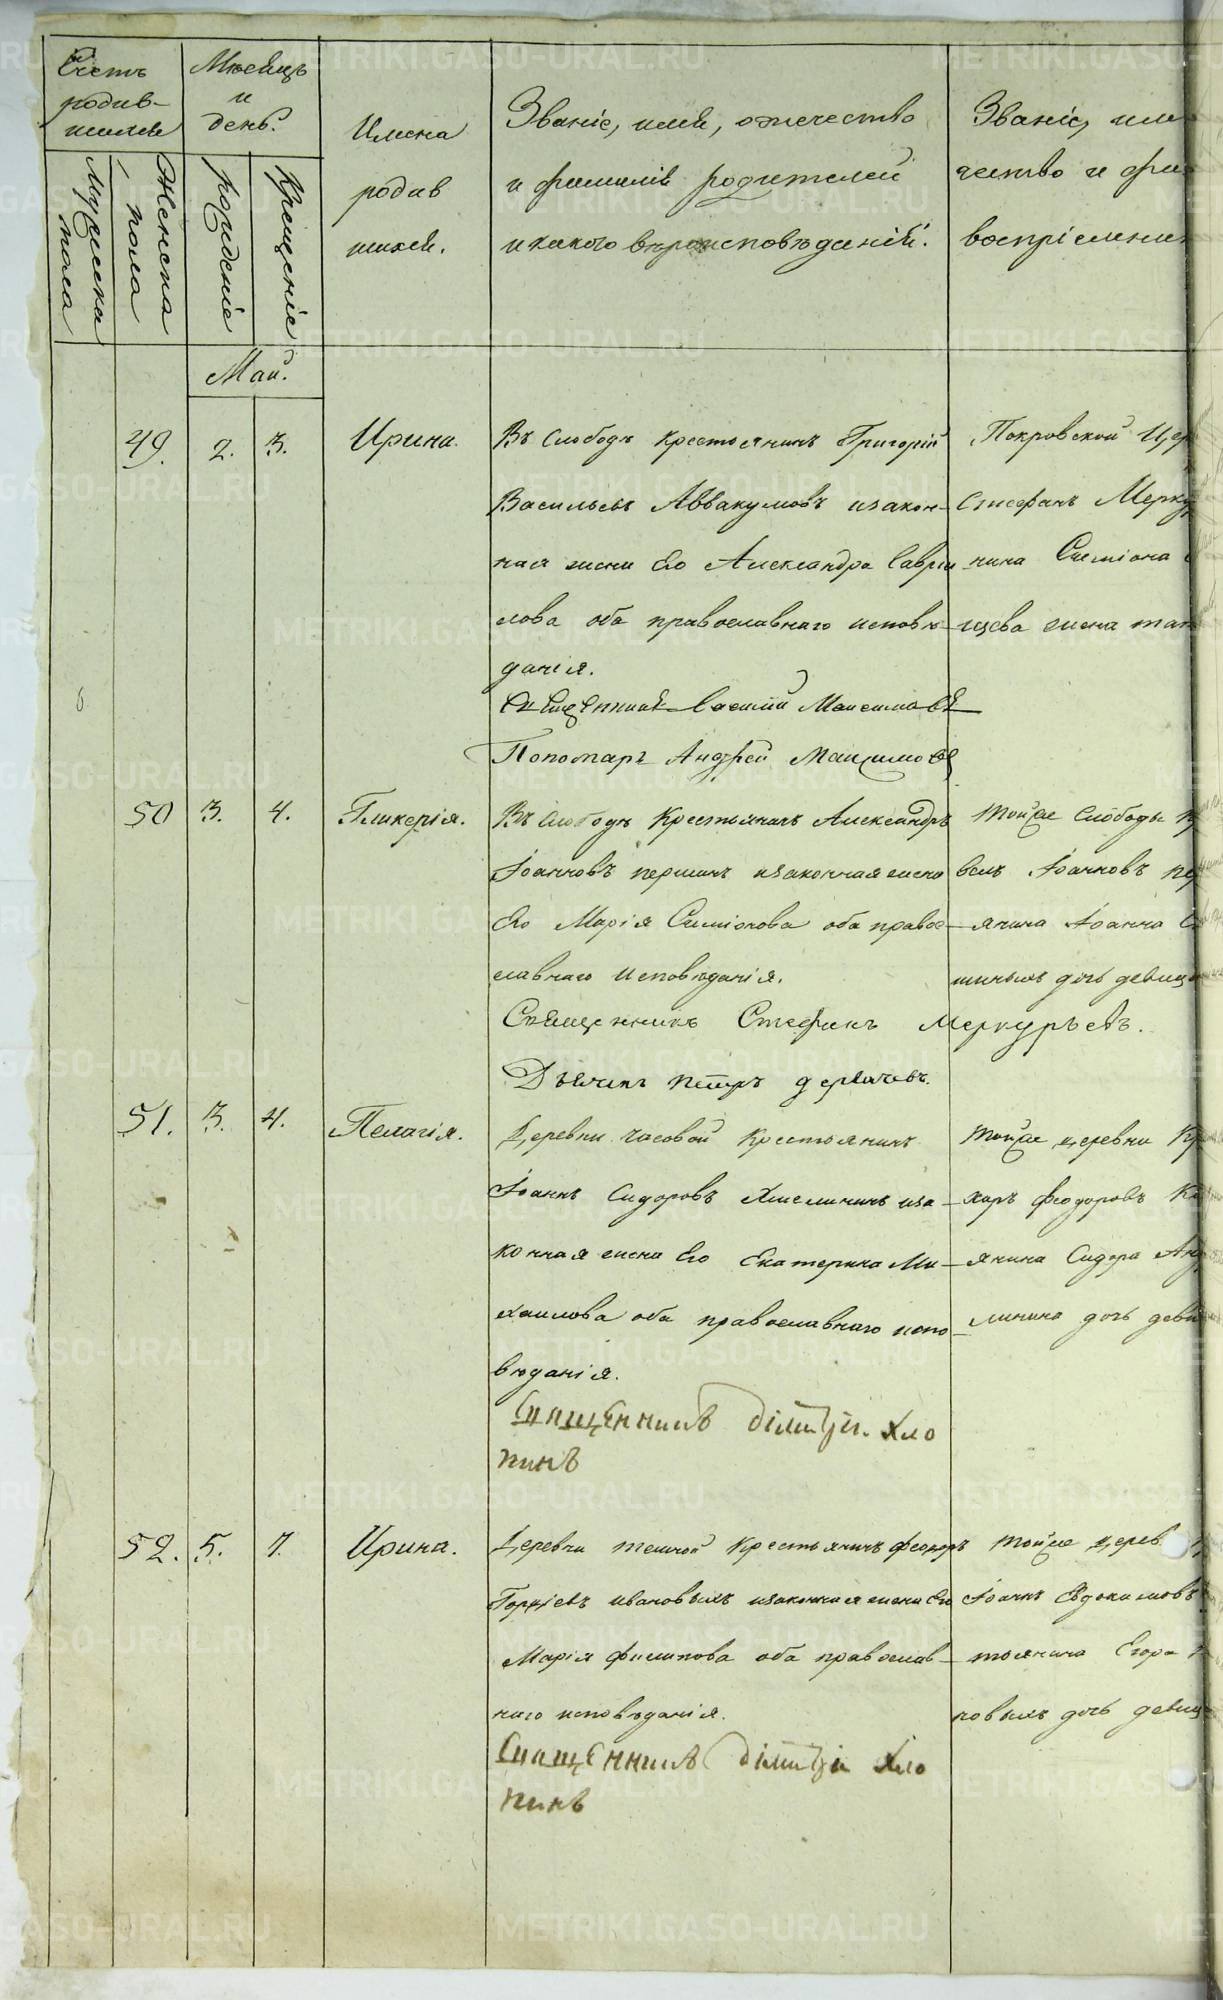 Счетъ
родив-
шихся
Мѣсяцъ
и
день.
Имена
родив
шихся.
Званіе, имя, отчество
и фамилія родителей
и какого вѣроисповѣданія.
Званіе, имя
чество и фа
воспріемни
Мужеска
пола
Женска
пола
рожденіе
Крещеніе
Май.
49. 2. 3. Ирина.
Въ Слободѣ крестьянинъ Григорій
Васильевъ Аввакумовъ изакон-
ная жена Его Александра Гаврии
лова оба православнаго исповѣ-
данія.
Священникъ Василий Максимовъ
Пономарь Андрей Максимовъ
Покровской Цер
Стефанъ Мерку
нина Симіона
щева жена
50 3. 4. Гликерія.
Въ Слободѣ Крестьянинъ Александръ
Іоанновъ першинъ изаконная жена
Его Марія Симіонова оба право-
славнаго Исповѣданія.
Священникъ Стефанъ Меркурьевъ.
Дьячекъ петръ дерячевъ.
тойже Слободы К
велъ Іоанновъ пе
янина Іоанна
шиныхъ дочь девица
51. 3. 4. Пелагія.
Деревни Часовой Крестьянинъ
Іоаннъ Сидоровъ Хмелининъ иза-
конная жена Его Екатерина Ми-
хаилова оба православнаго испо-
вѣданія.
Священникъ Дімитрій. Хло
пинъ
тойже деревни Кр
харъ Феодоровъ
янина Сидора Анд
линина дочь деви
52. 5. 7. Ирина.
Деревни темной Крестьянинъ Феодоръ
Гордіевъ ивановыхъ изаконная жена Его
Марія Филипова оба православ-
наго исповѣданія.
Священникъ Дімитрій Хло
пинъ
тойже дерев
Іоаннъ Евдокимовъ
тьянина Егора
новыхъ дочь девиц
METRIKI.GASO-URAL.RU